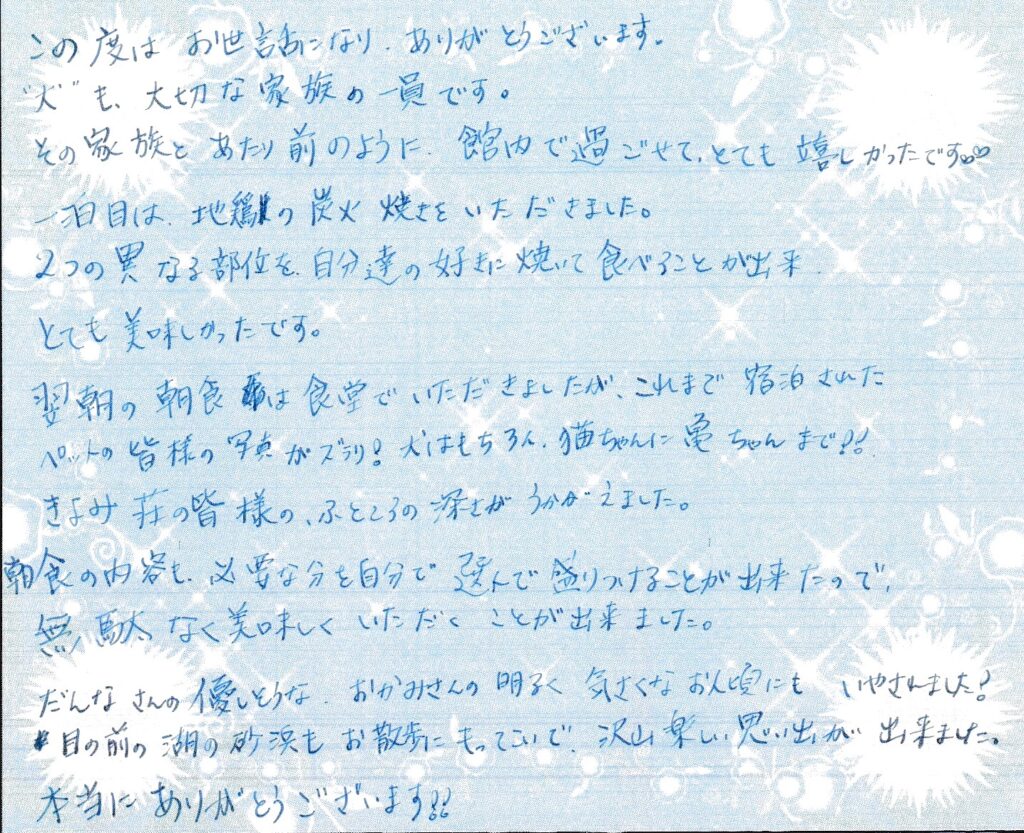 この度は お世話になり、ありがとうございます。
"犬"も、大切な家族の一員です。
その家族と あたり前のように、館内で過ごせて、とても嬉しかったです♡♡
一泊目は、地鶏の炭火焼きをいただきました。
2つの異なる部位を、自分達の好きに焼いて食べることが出来、
とても美味しかったです。
翌朝の朝食は食堂でいただきましたが、これまで宿泊された
ペットの皆様の写真がズラリ!犬はもちろん、猫ちゃんに亀ちゃんまで!!
きよみ荘の皆様の、ふところの深さがうかがえました。
朝食の内容も、必要な分を自分で選んで盛りつけることが出来たので、
無駄なく美味しくいただくことが出来ました。
だんなさんの優しそうな、おかみさんの明るく気さくなお人頃にもいやされました!
目の前の湖の砂浜もお散歩にもってこいで、沢山楽しい思い出が出来ました。
本当にありがとうございます!!